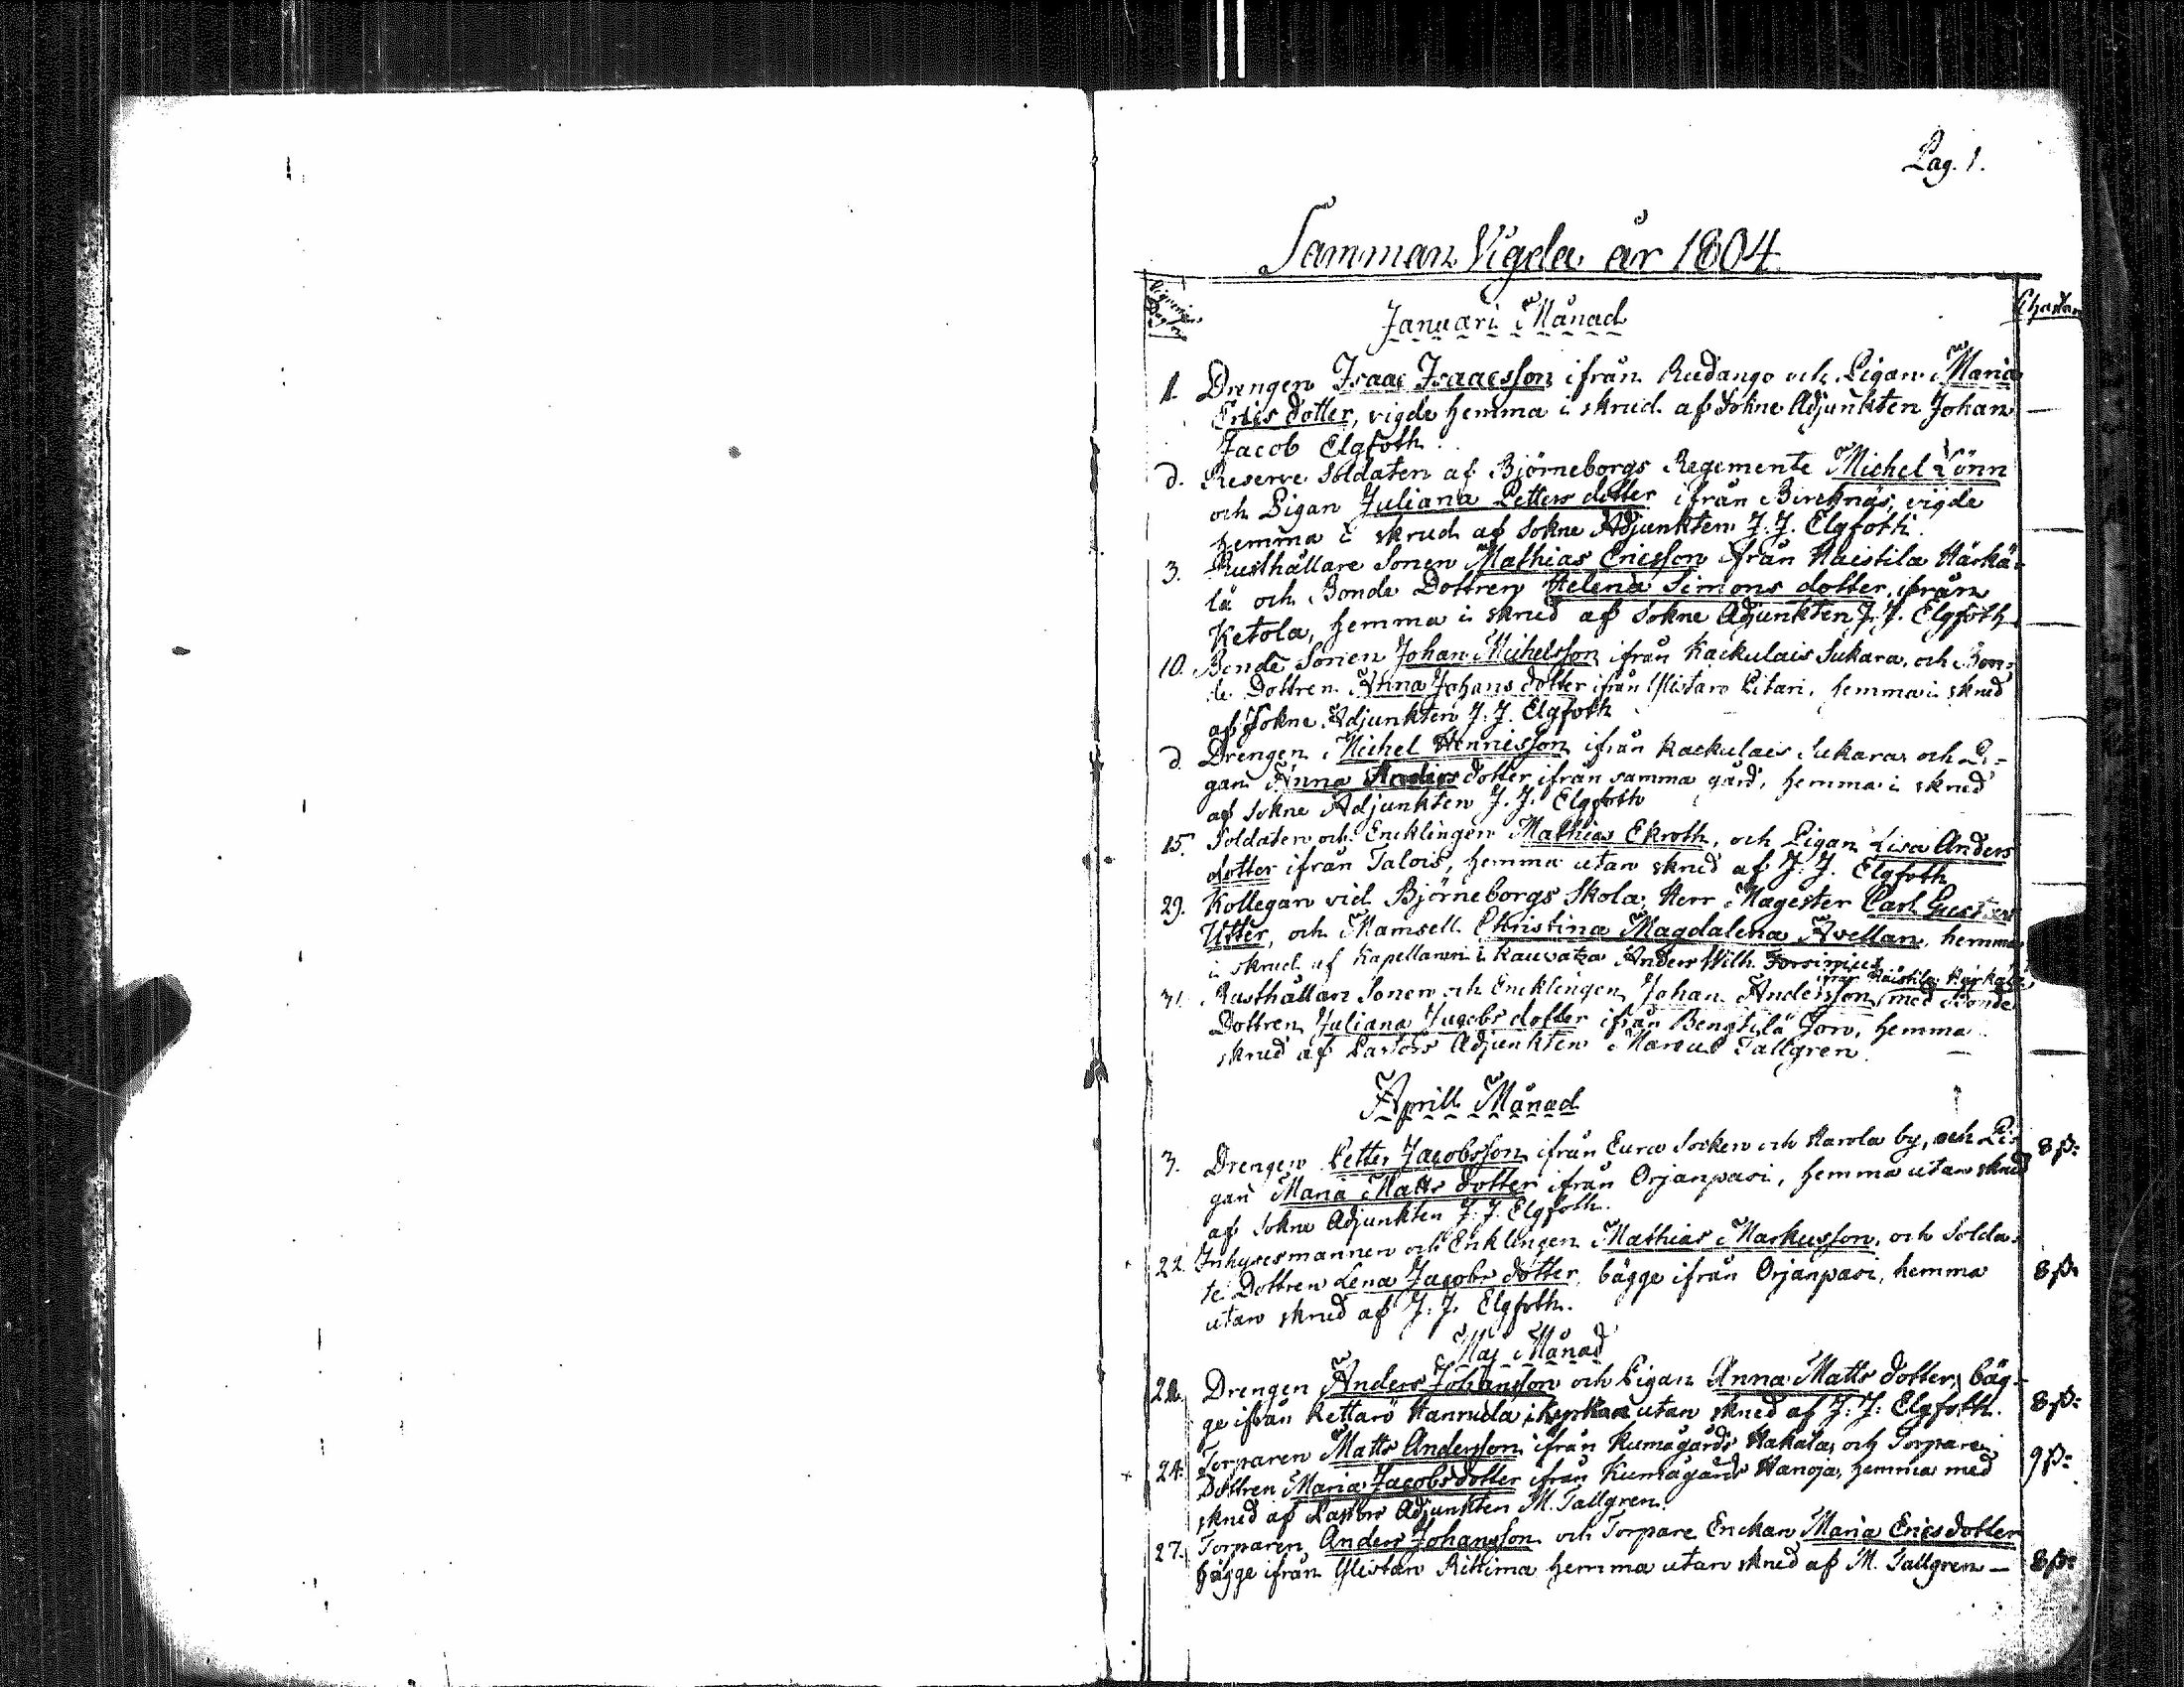 Pag. 1.
Samman Vigda år 1804
Vignings
Dagen
Chartan
Januari Månad
1. Drengen Isaac Isaacsson ifrån Rudango och Pigan Maria
Erics dotter, vigde hemma i skrud af Sokne Adjunkten Johan —
Jacob Elgfoth.
d. Reserve Soldaten af Björneborgs Regemente Michel Lönn
och Pigan Juliana Petters dotter ifrån Bircknäs, vigde
hemma i skrud af Sokne Adjunkten J. J. Elgfoth. —
3. Rusthållare Sonen Mathias Ericsson ifrån Haistila Härkä-
lä och Bonde Dottren Helena Simons dotter, ifrån
Ketola, hemma i skrud af Sokne Adjunkten J. J. Elgfoth —
10. Bonde Sonen Johan Michelsson ifrån Kackulais Sukara, och Bon-
de Dottren Anna Johans dotter ifrån Ylistaro Pitari, hemma i skrud
af Sokne Adjunkten J. J. Elgfoth —
d. Drengen Michel Hennisson ifrån Kackulais Sukara och Pi-
gan Anna dotter ifrån samma gård, hemma i skrud
af Sokne Adjunkten J. J. Elgfoth —
15. Soldaten och Encklingen Mathias Ekroth, och Pigan Lisa Anders
dotter ifrån Talois, hemma utan skrud af J. J. Elgfoth —
29. Kollegan vid Björneborgs Skola, Herr Magester Carl Gustav
Utter, och Mamsell Christina Magdalena Avellan, hemma
i skrud af Kapellanen i Kauvatza Anders Wilh. Forsinius
ifrån Haistila Härkälä
31. Rusthållare Sonen och Encklingen Johan Andersson med Bonde
Dottren Juliana Jacobs dotter ifrån Bengtilä Jorv, hemma i
skrud af Pastors Adjunkten Marcus Tallgren. —
Aprill Månad
3. Drengen Petter Jacobsson ifrån Eura Socken och Harola by, och Pi- 8 ß:
gan Maria Matts dotter ifrån Orjanpasi, hemma utan skrud
af Sokne Adjunkten J. J. Elgfoth.
22. Inhysesmannen och Enklingen Mathias Markusson, och Solda-
te Dottren Lena Jacobs dotter, bägge ifrån Orjanpasi, hemma 8 ß:
utan skrud af J. J. Elgfoth.
Maj Månad
22. Drengen Anders Johansson och Pigan Anna Matts dotter, bäg-
ge ifrån Kettarö Hannula, i Kyrkan utan skrud af J. J. Elgfoth. 8 ß:
24. Torparen Matts Andersson ifrån Kumågårds Hakala, och Torpare
Dottren Maria Jacobsdotter ifrån Kumågårds Hanoja, hemma med 9 ß:
skrud af Pastors Adjunkten M. Tallgren.
27. Torparen Anders Johansson och Torpare Enckan Maria Ericsdotter
bägge ifrån Ylistaro Rittima hemma utan skrud af M. Tallgren — 8 ß: